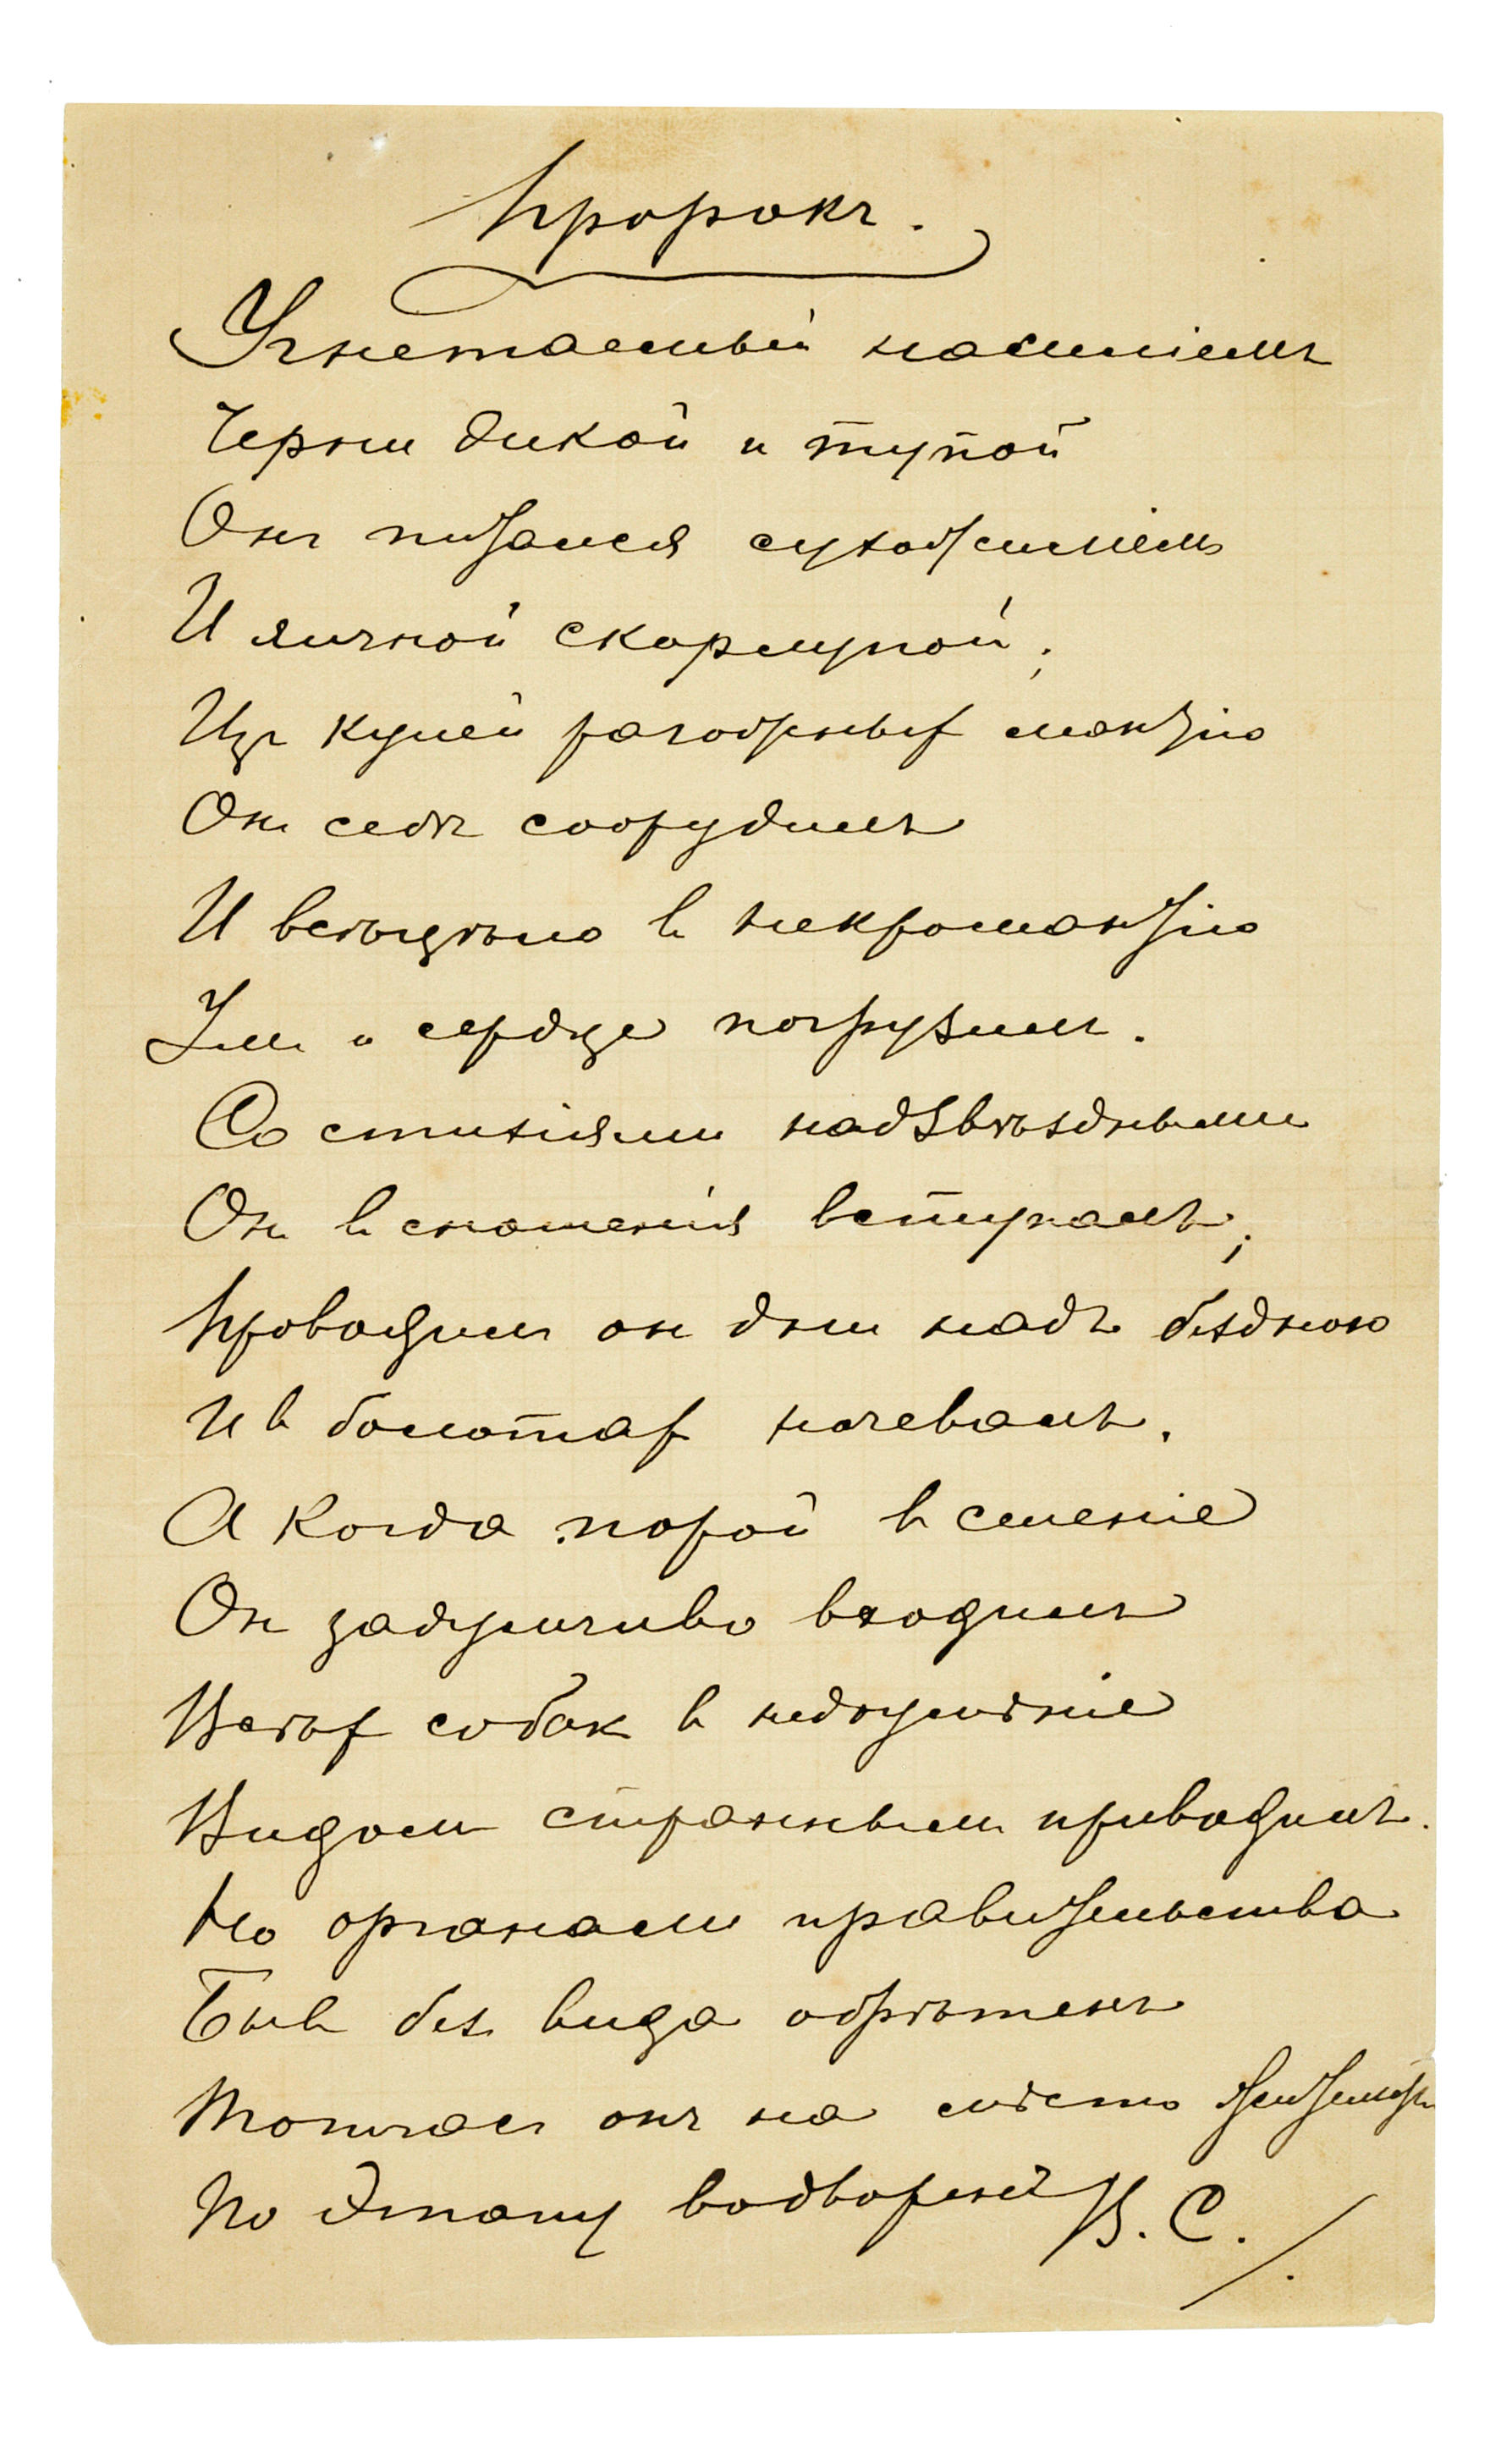 Пророкъ.
Угнетаемый насиліемъ
Черни дикой и тупой
Онъ питался сухожиліемъ
И яичной скорлупой;
Изъ кулей рогожныхъ мантію
Онъ себѣ соорудилъ
И всецѣло въ некромантію
Умъ и сердце погрузилъ.
Со стихіями надзвѣздными
Онъ въ сношенія вступалъ;
Проводилъ онъ дни надъ бездною
И въ болотах ночевалъ.
А когда порой въ селеніе
Онъ задумчиво входилъ
Всѣхъ собакъ въ недоумѣніе
Видомъ страннымъ приводилъ.
Но органами правительства
Бывъ безъ вида обрѣтенъ
Тотчасъ онъ на мѣсто жительства
По этапу водворенъ В. С.